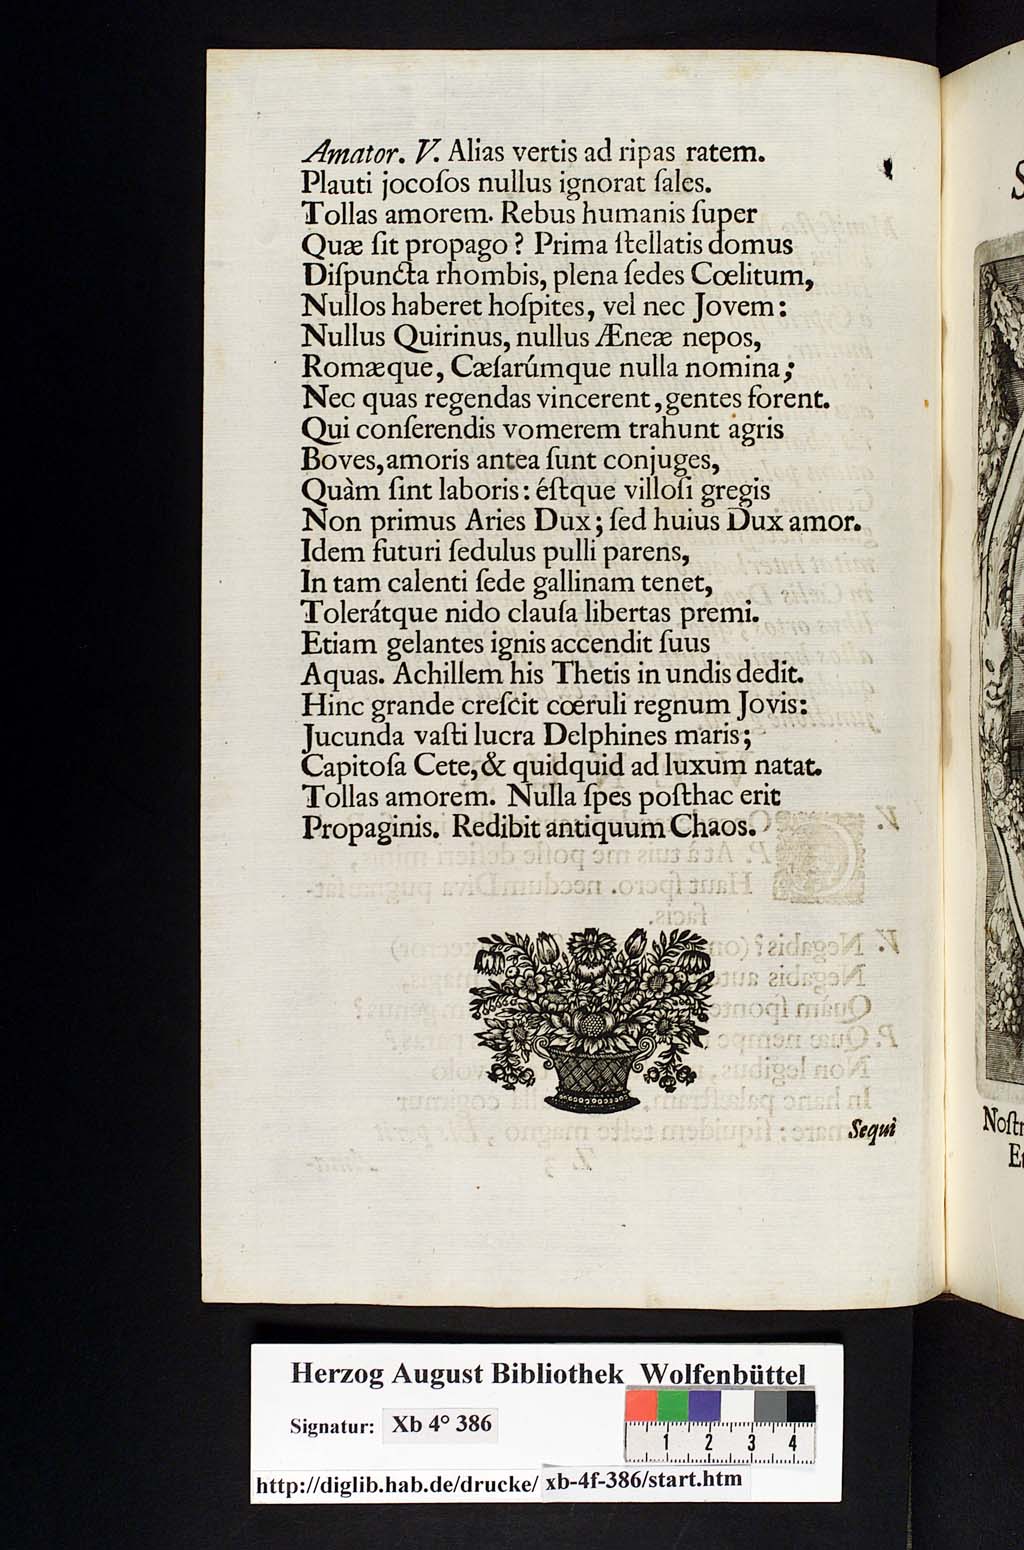 Amator. V. Alias vertis ad ripas ratem.
Plauti jocoſos nullus ignorat ſales.
Tollas amorem. Rebus humanis ſuper
Quæ ſit propago? Prima ſtellatis domus
Diſpuncta rhombis, plena ſedes Cœlitum,
Nullos haberet hoſpites, vel nec Jovem:
Nullus Quirinus, nullus Æneæ nepos,
Romæque, Cæſarúmque nulla nomina;
Nec quas regendas vincerent, gentes forent.
Qui conſerendis vomerem trahunt agris
Boves, amoris antea ſunt conjuges,
Quàm ſint laboris: éſtque villoſi gregis
Non primus Aries Dux; ſed huius Dux amor.
Idem futuri ſedulus pulli parens,
In tam calenti ſede gallinam tenet,
Tolerátque nido clauſa libertas premi.
Etiam gelantes ignis accendit ſuus
Aquas. Achillem his Thetis in undis dedit.
Hinc grande creſcit cœruli regnum Jovis:
Jucunda vaſti lucra Delphines maris;
Capitoſa Cete, & quidquid ad luxum natat.
Tollas amorem. Nulla ſpes poſthac erit
Propaginis. Redibit antiquum Chaos.
Sequi
S
Noſtr
Et
Herzog August Bibliothek Wolfenbüttel
Signatur: Xb 4° 386
1 2 3 4
http://diglib.hab.de/drucke/ xb-4f-386/start.htm